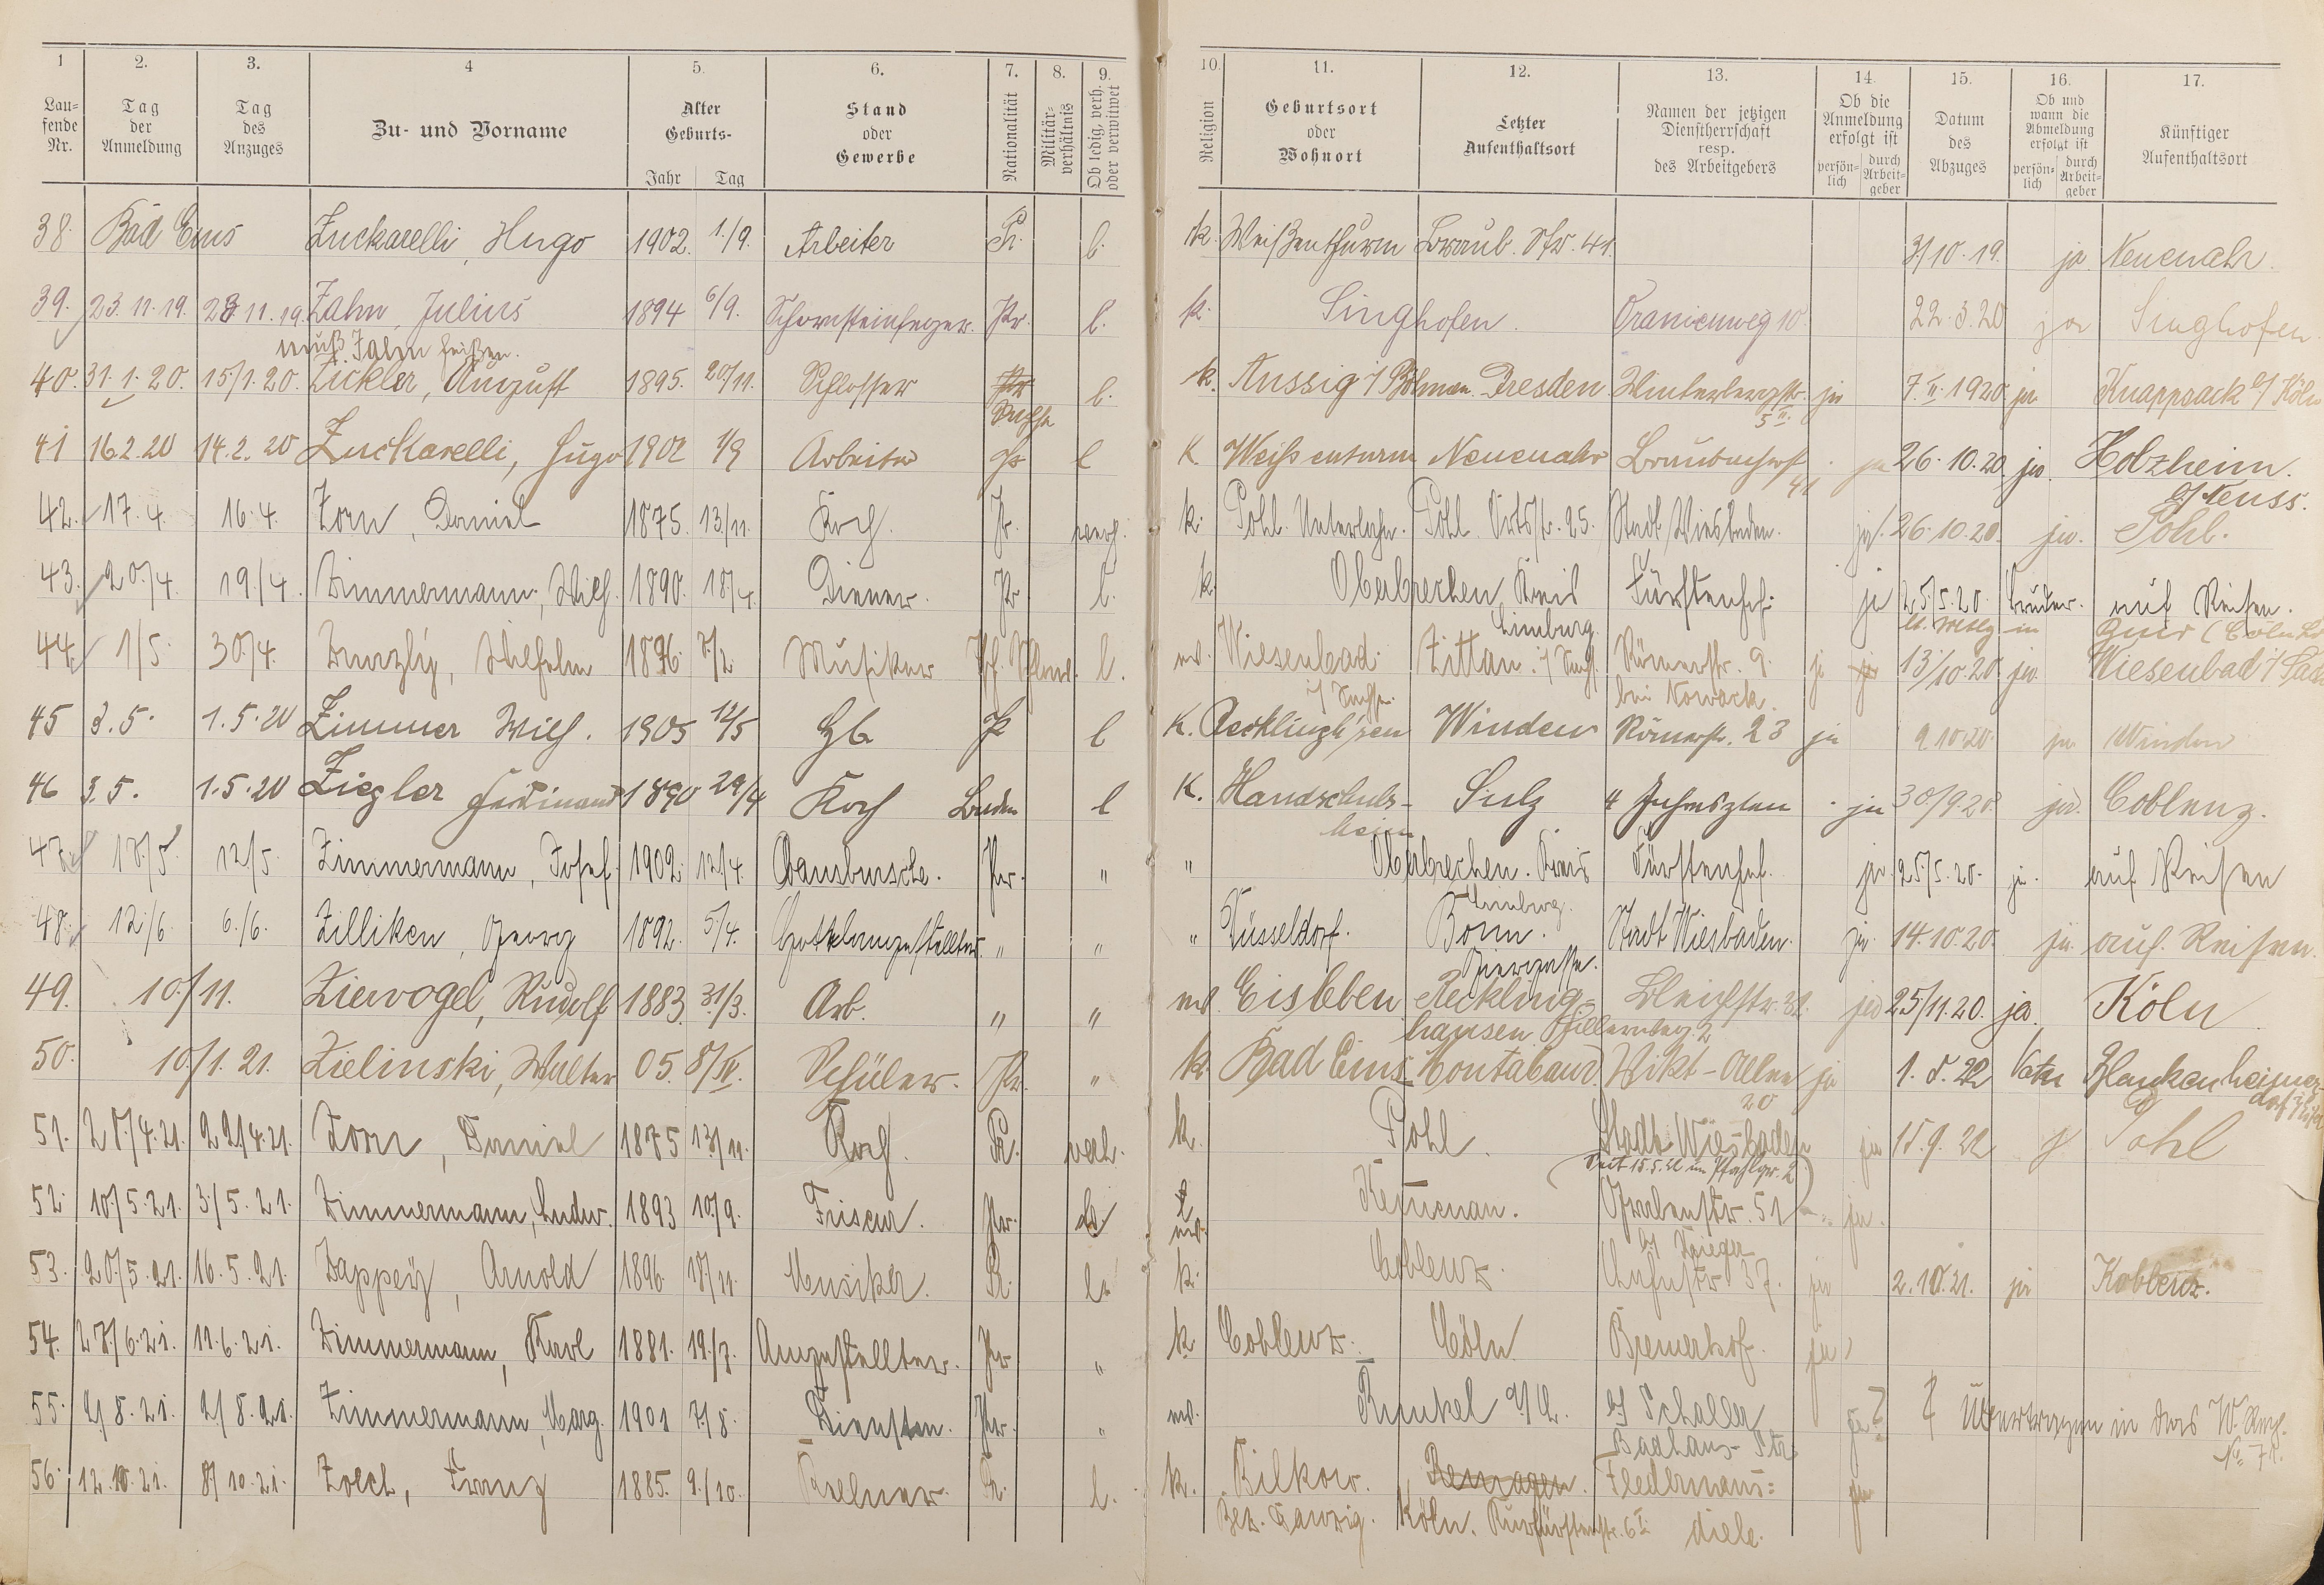 1 2. 3. 4 5. 6. 7. 8. 9. 10. 11. 12. 13. 14. 15. 16. 17.
Lau-fende Nr. Tag der Anmeldung Tag des Anzuges Zu- und Vorname Alter Geburts- Jahr Tag Stand oder Gewerbe Nationalität Militär-verhältnis Ob ledig, verh. oder verwitwet Religion Geburtsort oder Wohnort Letzter Aufenthaltsort Namen der jetzigen Dienstherrschaft resp. des Arbeitgebers Ob die Anmeldung erfolgt ist persön-lich durch Arbeit-geber Datum des Abzuges Ob und wann die Abmeldung erfolgt ist persön-lich durch Arbeit-geber Künftiger Aufenthaltsort
38. Bad Ems Zuckarelli, Hugo 1902. 1./9. Arbeiter Pr. l. k. Weißenthurm Braub. Str. 41. 3/10.19. ja Neuenahr.
39. 23.11.19. 23.11.19. Zahn, Julius 1894 6/9. Schornsteinfeger. Pr. l. k. Singhofen. Oranienweg 10 22.3.20 ja Singhofen.
muß Jahn heißen.
40. 31.1.20. 15/1.20. Zickler, August 1895. 20/11. Schlosser Pr Sachse l. k. Aussig i/Böhmen. Dresden Winterbergstr. 5 II. ja 7.II.1920. ja Knappsack b/Köln
41 16.2.20 14.2.20 Zuckarelli, Hugo 1902 1/9 Arbeiter Pr l K. Weissenturm Neuenahr Braubacherst 41 ja 26.10.20. ja. Holzheim. b/Neuss.
42. 17.4. 16.4. Zorn, Daniel 1875. 13/11. Koch. Pr. verh. k. Pohl. Unterlahn. Pohl. Ortsstr. 25. Stadt Wiesbaden. ja. 26.10.20. ja. Pohl.
43. 20./4. 19./4. Zimmermann, Wilh. 1890. 18/4. Diener. Pr l. k. Oberbrechen Kreis Limburg. Fürstenhof. ja 25/5.20. Bruder. auf Reisen.
44. 1/5. 30./4. Wilhelm 1896. 7/2 Musiker l. ev. Wiesenbad i/Sachse. Zittau i/Sachs. Römerstr. 9. bei Nowack. ja ja 13/10.20. ja. Wiesenbad i/Sachs
45 3.5. 1.5.20 Zimmer Wilh. 1905 12/5 Pr l K. Recklingh'sen Winden Römerstr. 23 ja 9.10.20. ja Winden
46 3.5. 1.5.20 Ziegler Ferdinand 1890 29/4 Koch Baden l K. Handschuhs-heim Sulz 4 Jahreszten ja 30/9.20. ja. Coblenz.
47. 18./5. 12/5. Zimmermann, Josef. 1902. 12/4. Hausbursche. Pr. " " Oberbrechen. Kreis Limburg. Fürstenhof. ja 25/5.20. ja. auf Reisen
48. 12/6. 6./6. Zilliken, Georg 1892. 5/4. Hotelangestellter. " " " Düsseldorf. Bonn. Stadt Wiesbaden. ja. 14.10.20. ja. auf Reisen.
49. 10./11. Ziervogel, Rudolf 1883. 31/3. Arb. " " ev. Eisleben Reckling-hausen. Hillerweg. 2 Bleichstr. 32. ja 25/11.20. ja Köln
50. 10./1.21. Zielinski, Walter 05. 8/IV. Schüler. Pr. " k. Bad Ems Montabaur Vikt-Allee 20 ja 1.8.22 Vater Blankenheimer-dorf i/Eifel
51. 28/4.21. 22/4.21. Zorn, Daniel 1875 13/11. Koch. Pr. verh. k. Pohl. Stadt Wiesbaden ja 15.9.22 ja Pohl
(Seit 15.5.22 im Pfahlgr. 2)
52. 10./5.21. 3/5.21. Zimmermann, Ludw. 1893 10./9. Friseur. Pr. ev. Kemenau. Grabenstr. 51 ja.
53. 20./5.21. 16.5.21. Arnold 1896. 18/11. Musiker. Pr. l. k. Coblenz. b/Krieger 37. ja 2.10.21. ja Koblenz.
54. 28/6.21. 11.6.21. Zimmermann, Karl 1881. 19./7. Angestellter. Pr " k Coblenz. Cöln Bremerhof. ja
55. 2/8.21. 2/8.21. Zimmermann, Marg. 1901 7./8. Dienstm. Pr. " ev. Runkel a/L. b/Schaller Badhaus- Str. ja ? Übertragen in das W. Reg. No 72.
56. 12.10.21. 8/10.21. Zoech, Franz 1885. 9./10. Kellner. Pr. l. k. Bilkow. Bez. Danzig. Remagen. Köln. Kurfürstenstr. 6 I. Fledermaus-diele. ja